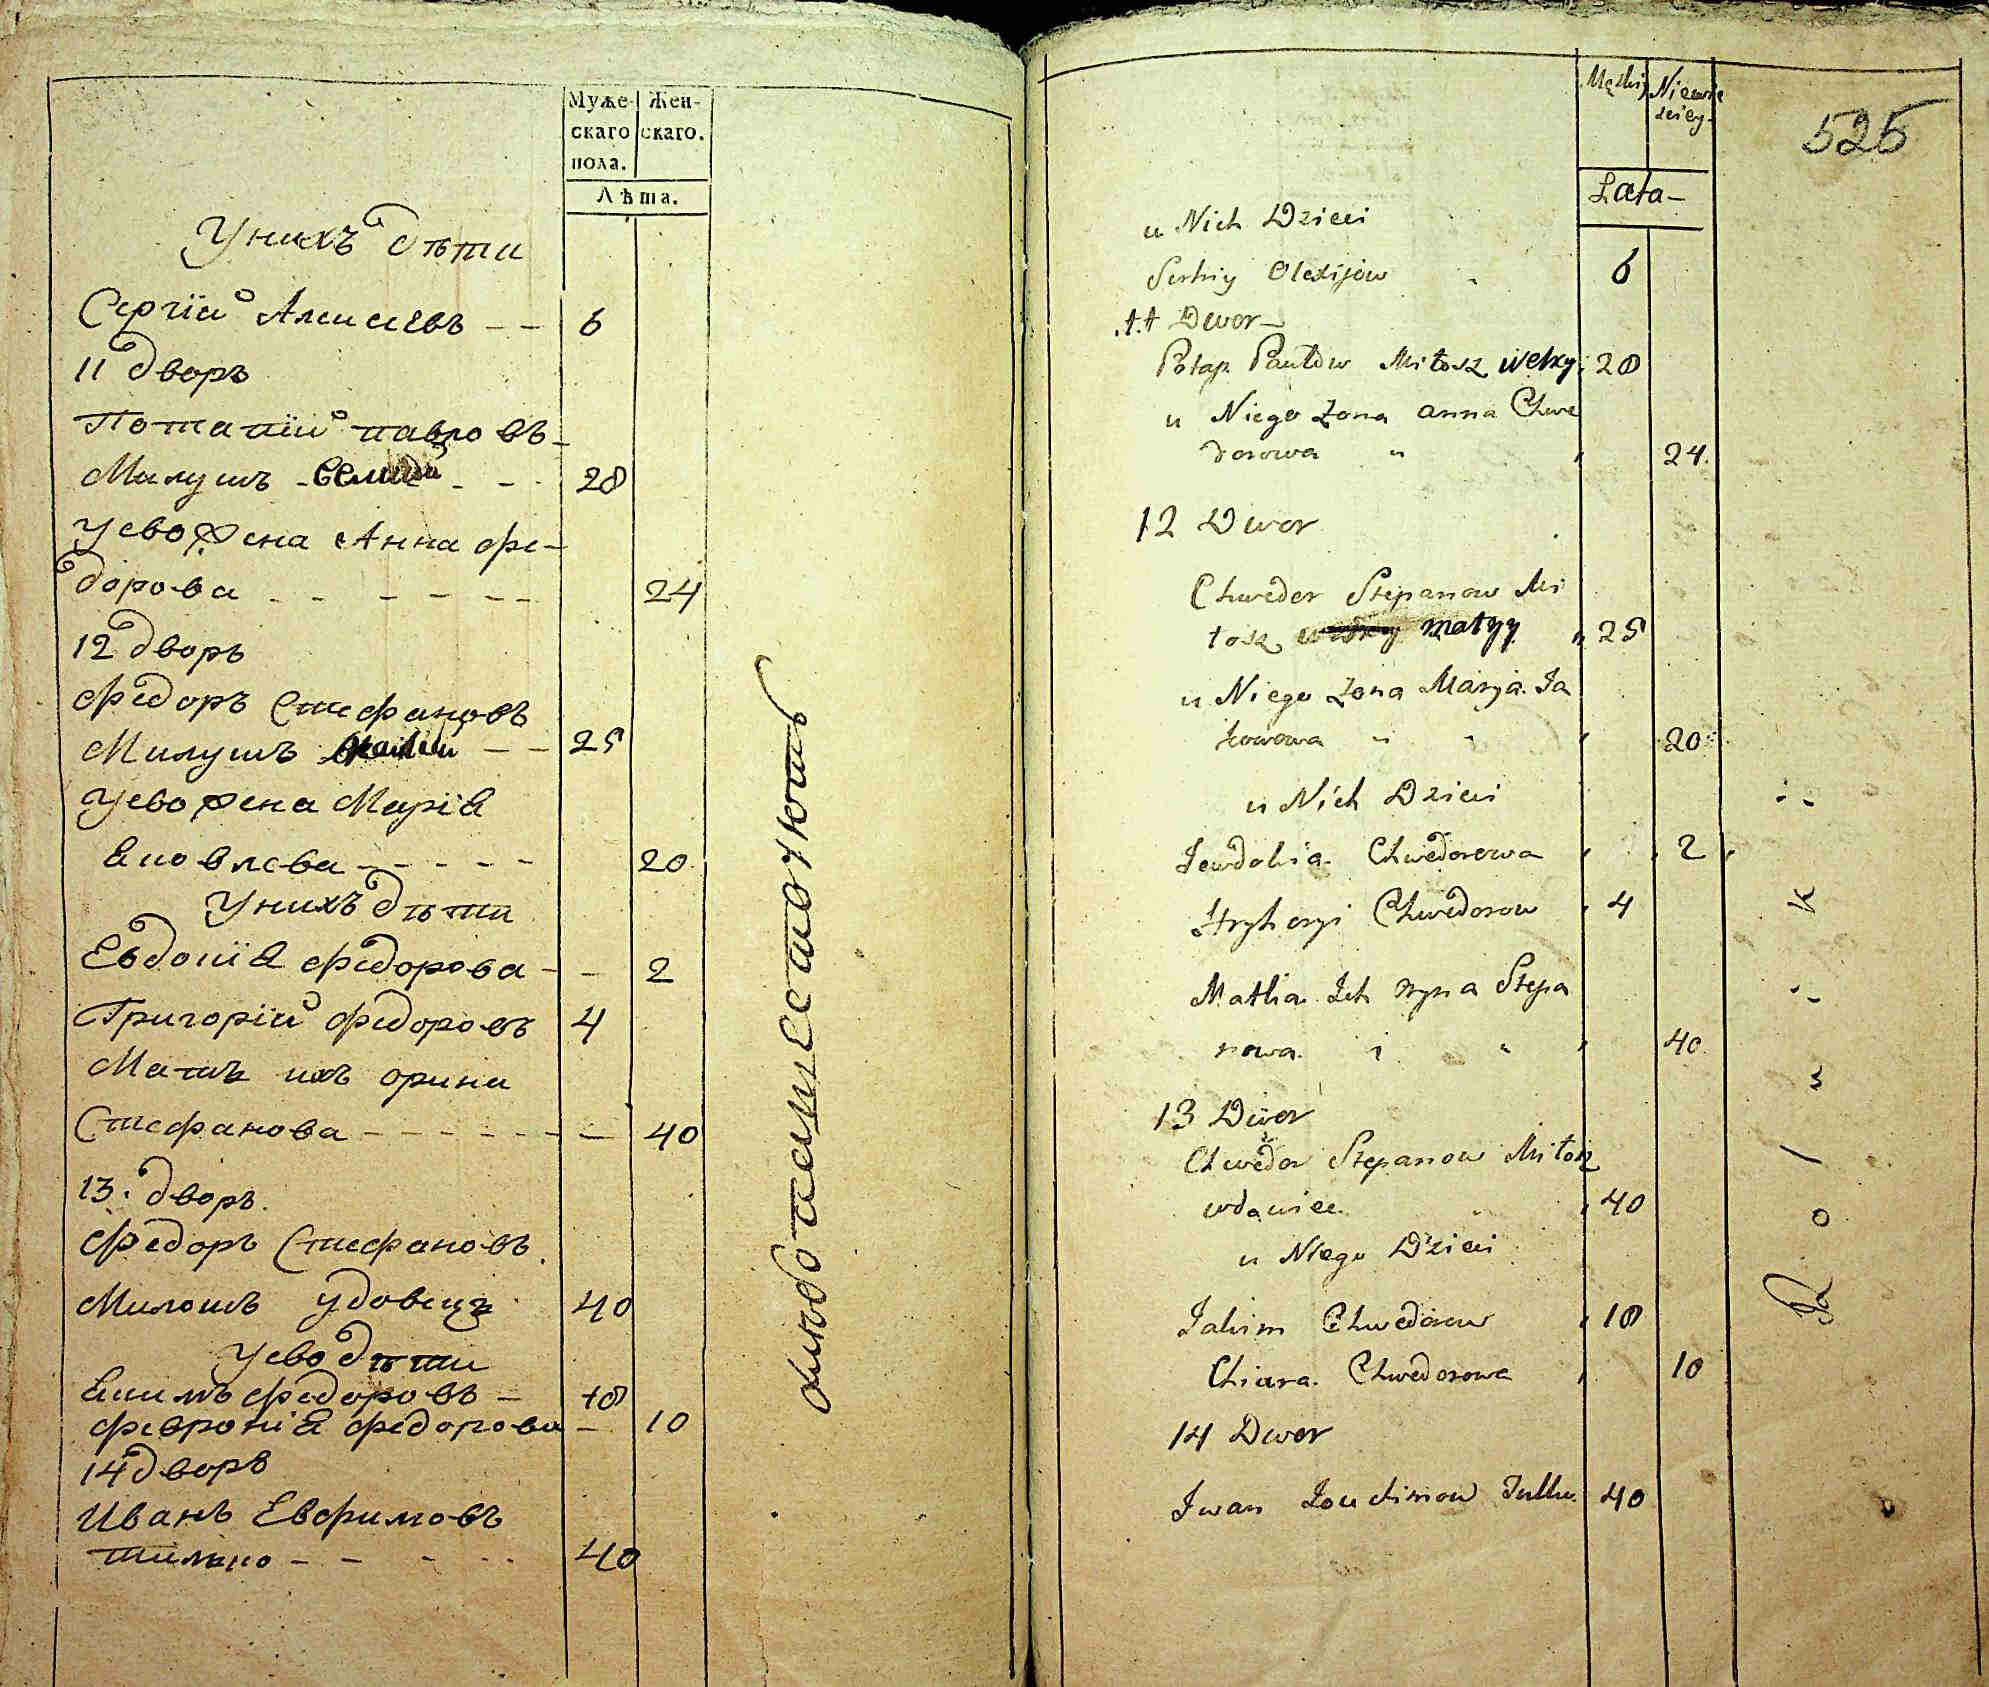 Муже- Жен-
скаго скаго.
пола.
Лѣта.
Унихъ дѣти
Сергїй Алексеевъ - - 6
11 дворъ
Потапїй павловъ-
Милушъ - - - 28
Уево жена Анна фе-
дорова - - - - - - 24
12 дворъ
Федоръ Стефановъ
Милушъ - - 25
Уево жена Марія
Яковлева - - - - - 20
Унихъ дѣти
Евдокїя федорова - - 2
Григорій федоровъ 4
Мать ихъ орина
Стефанова - - - - - - - 40
13. дворъ.
Федоръ Стефановъ
Милошъ удовецъ 40
Уево дѣти
Якимъ федоровъ - 18
феврония федорова - 10
14 дворъ
Иванъ Евфимовъ
тилько - - - - 40
Męzkiy Niewie
sciey.
525
Lata-
u Nich Dzieci
Serhiy Olexijow 6
11 Dwor-
Potap Pawłow Miłosz welky 28
u Niego Zona anna Chwe
dorowa 24.
12 Dwor
Chweder Stepanow Mi
łosz małyy 25
u Niego Zona Marya Ja
kowowa 20
u Nich Dzieci
Jewdokia Chwedorowa 2
Hryhoryi Chwedorow 4
Matka Ich Iryna Stepa
nowa 40
13 Dwor
Chwedor Stepanow Miłosz
wdowiec 40
u Niego Dzieci
Jakim Chwedorow 18
Chiwra Chwedorowa 10
14 Dwor
Iwan Jouchimow 40